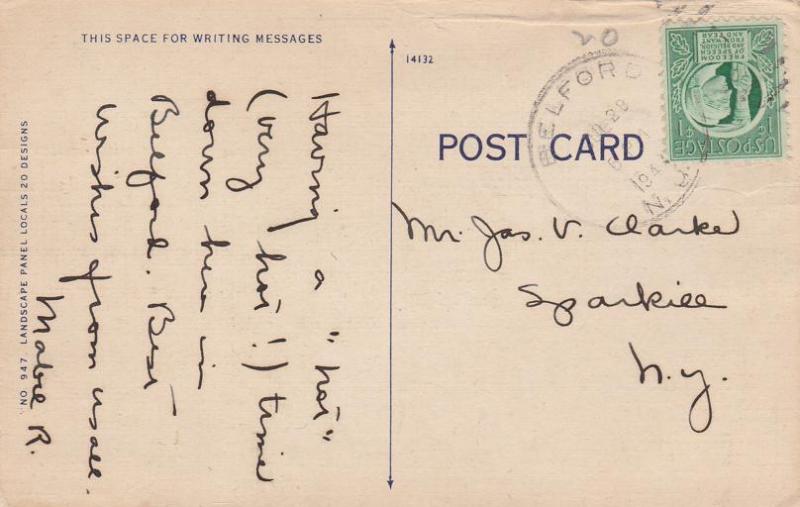 THIS SPACE FOR WRITING MESSAGES
Having a "hot"
(very hot!) time
down here in
Belford. Best
wishes from us all.
Mabel R.
NO. 947 LANDSCAPE PANEL LOCALS 20 DESIGNS
14132
POST CARD
20
BELFORD
28
194
N.
Mr. Jas. V. Clarke
Sparkill
N.Y.
U.S. POSTAGE
1¢
FREEDOM
OF SPEECH
AND RELIGION,
FROM WANT
AND FEAR